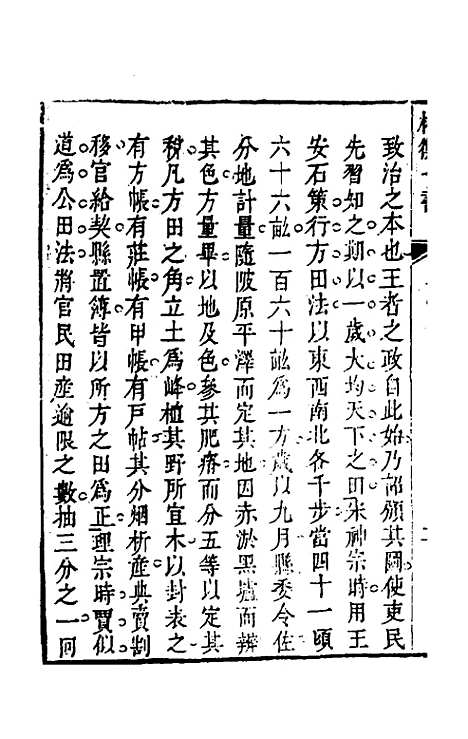 致治之本也王者之政自此始乃詔頒其圖使吏民
先習知之期以一歲大均天下之田朱神宗時用王
安石策行方田法以東西南北各千步當四十一頃
六十六畝一百六十畝為一方歲以九月縣委令佐
分地計量隨陂原平澤而定其地因赤淤黑壚而辨
其色方量畢以地及色參其肥瘠而分五等以定其
稅凡方田之角立土為峰植其野所宜木以封表之
有方帳有莊帳有甲帳有戶帖其分烟析產典賣割
移官給契縣置簿皆以所方之田為正理宗時賈似
道為公田法將官民田產逾限之數抽三分之一囘